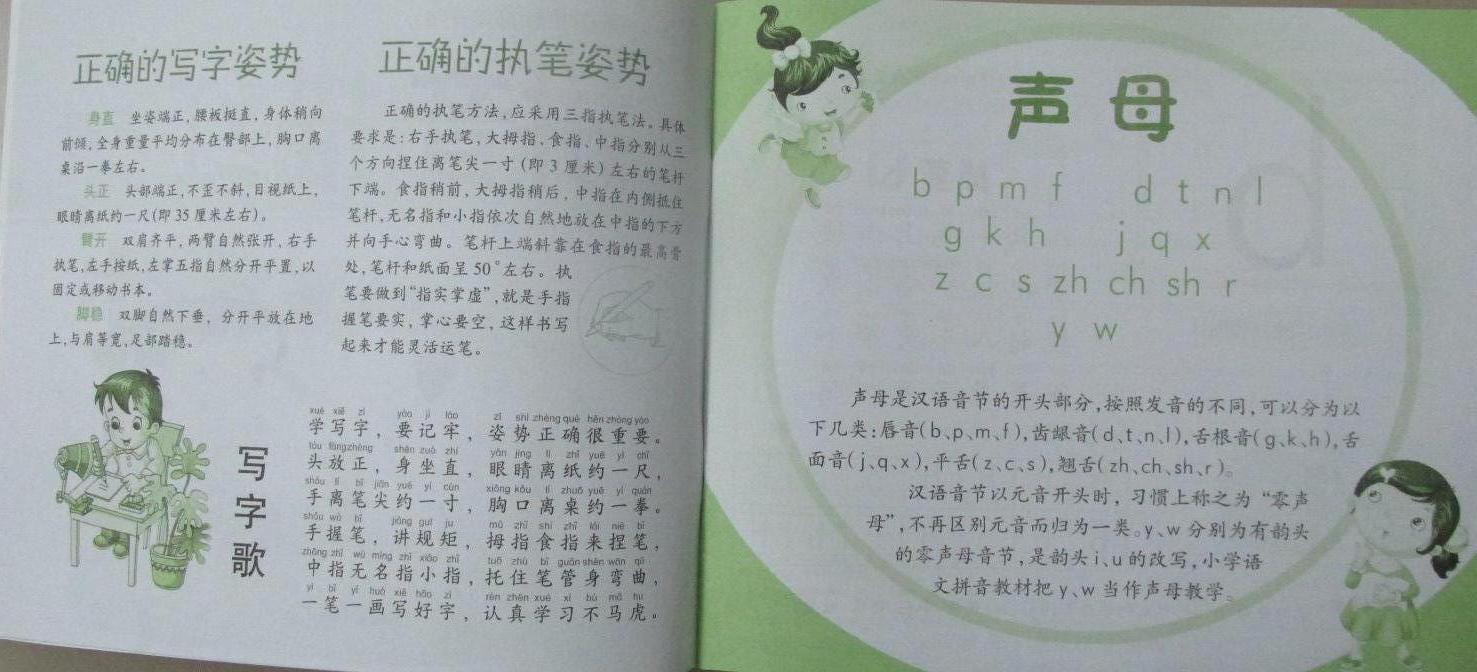 正确的写字姿势
身直 坐姿端正，腰板挺直，身体稍向
前倾，全身重量平均分布在臀部上，胸口离
桌沿一拳左右。
头正 头部端正，不歪不斜，目视纸上，
眼睛离纸约一尺(即35厘米左右)。
臂开 双肩齐平，两臂自然张开，右手
执笔，左手按纸，左掌五指自然分开平置，以
固定或移动书本。
脚稳 双脚自然下垂，分开平放在地
上，与肩等宽，足部踏稳。
正确的执笔姿势
正确的执笔方法，应采用三指执笔法。具体
要求是：右手执笔，大拇指、食指、中指分别从三
个方向捏住离笔尖一寸(即3厘米)左右的笔杆
下端。食指稍前，大拇指稍后，中指在内侧抵住
笔杆，无名指和小指依次自然地放在中指的下方
并向手心弯曲。笔杆上端斜靠在食指的最高骨
处，笔杆和纸面呈50°左右。执
笔要做到“指实掌虚”，就是手指
握笔要实，掌心要空，这样书写
起来才能灵活运笔。
写字歌
xué xiě zì yào jì láo zī shì zhèng què hěn zhòng yào
学写字，要记牢，姿势正确很重要。
tóu fàng zhèng shēn zuò zhí yǎn jīng lí zhǐ yuē yì chǐ
头放正，身坐直，眼睛离纸约一尺，
shǒu lí bǐ jiān yuē yí cùn xiōng kǒu lí zhuō yuē yì quán
手离笔尖约一寸，胸口离桌约一拳。
shǒu wò bǐ jiǎng guī ju mǔ zhǐ shí zhǐ lái niē bǐ
手握笔，讲规矩，拇指食指来捏笔，
zhōng zhǐ wú míng zhǐ xiǎo zhǐ tuō zhù bǐ guǎn shēn wān qū
中指无名指小指，托住笔管身弯曲，
yì bǐ yí huà xiě hǎo zì rèn zhēn xué xí bù mǎ hu
一笔一画写好字，认真学习不马虎。
声母
b p m f d t n l
g k h j q x
z c s zh ch sh r
y w
声母是汉语音节的开头部分，按照发音的不同，可以分为以
下几类：唇音(b、p、m、f)，齿龈音(d、t、n、l)，舌根音(g、k、h)，舌
面音(j、q、x)，平舌(z、c、s)，翘舌(zh、ch、sh、r)。
汉语音节以元音开头时，习惯上称之为“零声
母”，不再区别元音而归为一类。y、w分别为有韵头
的零声母音节，是韵头i、u的改写，小学语
文拼音教材把y、w当作声母教学。